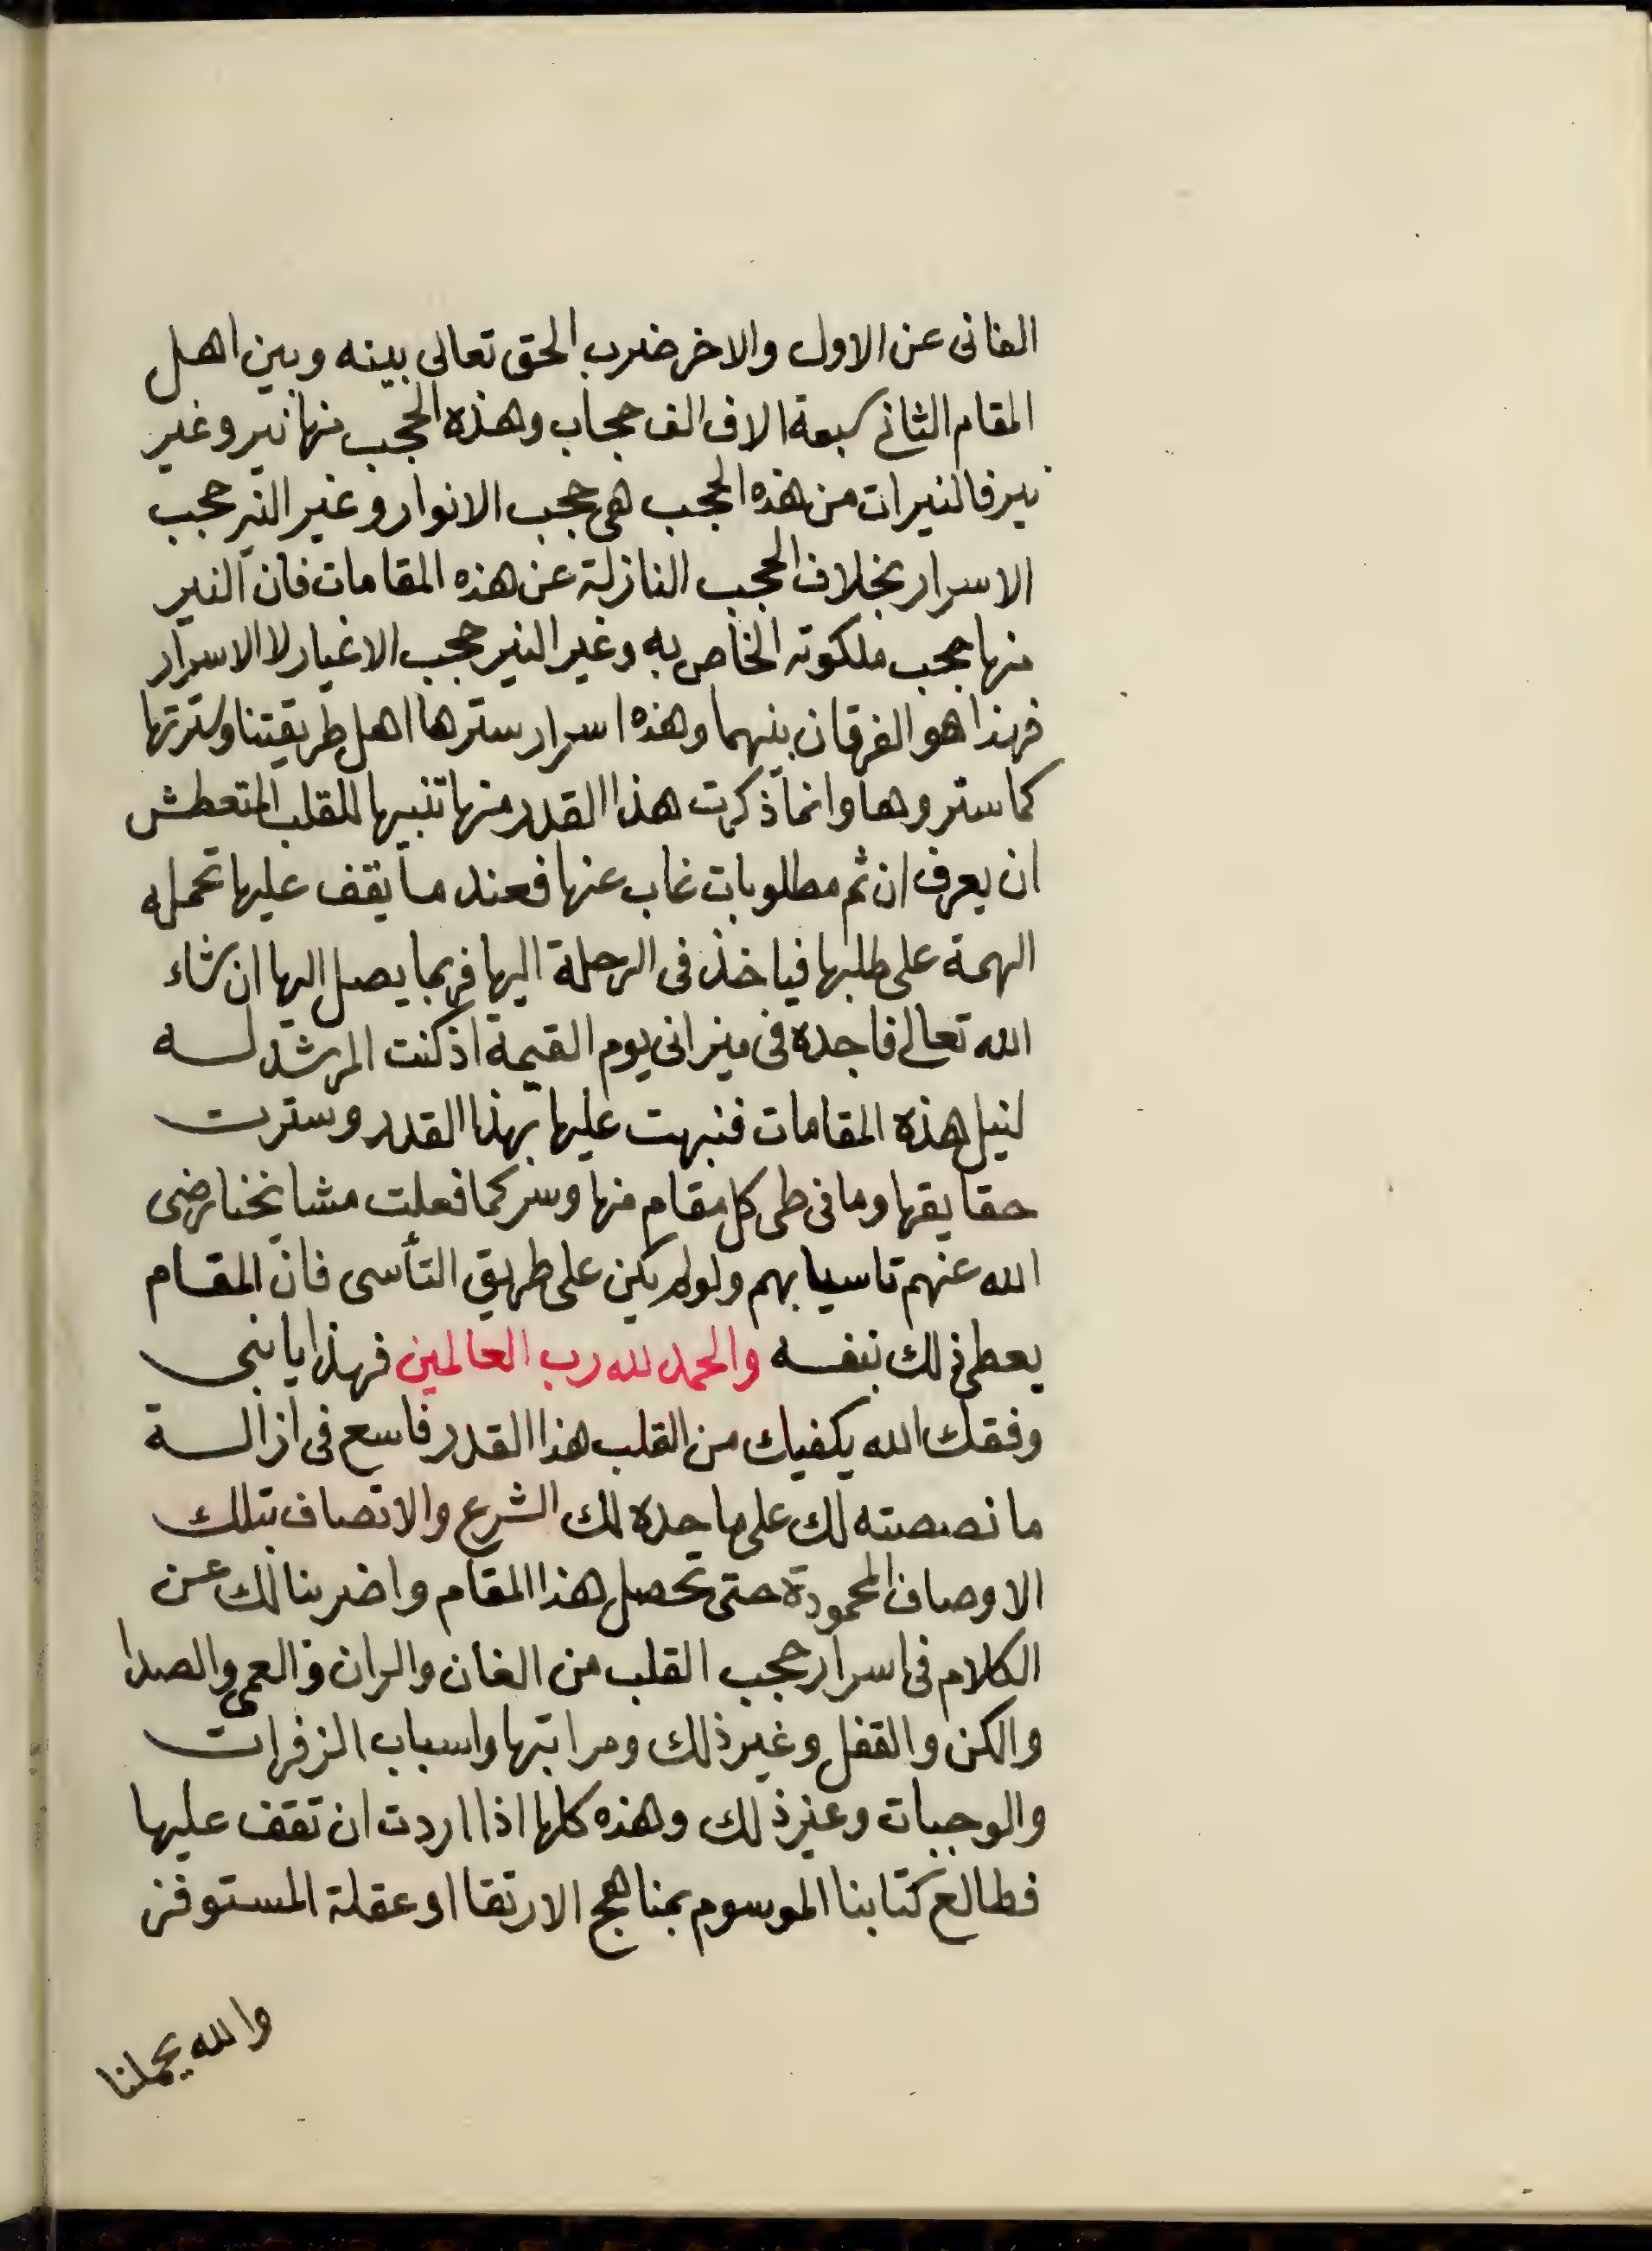 الفانى عن الاول والاخر ضرب الحق تعالى بينه وبين اهل
المقام الثانى سبعة الاف الف حجاب وهذه الحجب منها نير وغير
نير فالنيرات من هذه الحجب هى حجب الانوار وغير النير حجب
الاسرار بخلاف الحجب النازلة عن هذه المقامات فان النير
منها حجب ملكوته الخاص به وغير النير حجب الاغيار لا الاسرار
فهذا هو الفرقان بينهما وهذه اسرار سترها اهل طريقتنا وسترتها
كما ستروها وانما ذكرت هذا القدر منها تنبيها للقلب المتعطش
ان يعرف ان ثم مطلوبات غاب عنها فعند ما يقف عليها تحمله
الهمة على طلبها فياخذ فى الرحلة اليها فربما يصل اليها ان شاء
الله تعالى فاجده فى ميزانى يوم القيمة اذ كنت المرشد له
لنيل هذه المقامات فنبهت عليها بهذا القدر وسترت
حقايقها وما فى طى كل مقام منها وسر كما فعلت مشايخنا رضى
الله عنهم تاسيا بهم ولو لم يكن على طريق التأسى فان المقام
يعطى ذلك بنفسه والحمد لله رب العالمين فهذا يا بنى
وفقك الله يكفيك من القلب هذا القدر فاسع فى ازالة
ما نصصته لك على ما حده لك الشرع والاتصاف بتلك
الاوصاف المحمودة حتى تحصل هذا المقام واضربنا لك عن
الكلام فى اسرار حجب القلب من الغان والران والعمى والصدا
والكن والقفل وغير ذلك ومراتبها واسباب الزفرات
والوجبات وغير ذلك وهذه كلها اذا اردت ان تقف عليها
فطالع كتابنا الموسوم بمناهج الارتقا او عقلة المستوفز
والله يحملنا